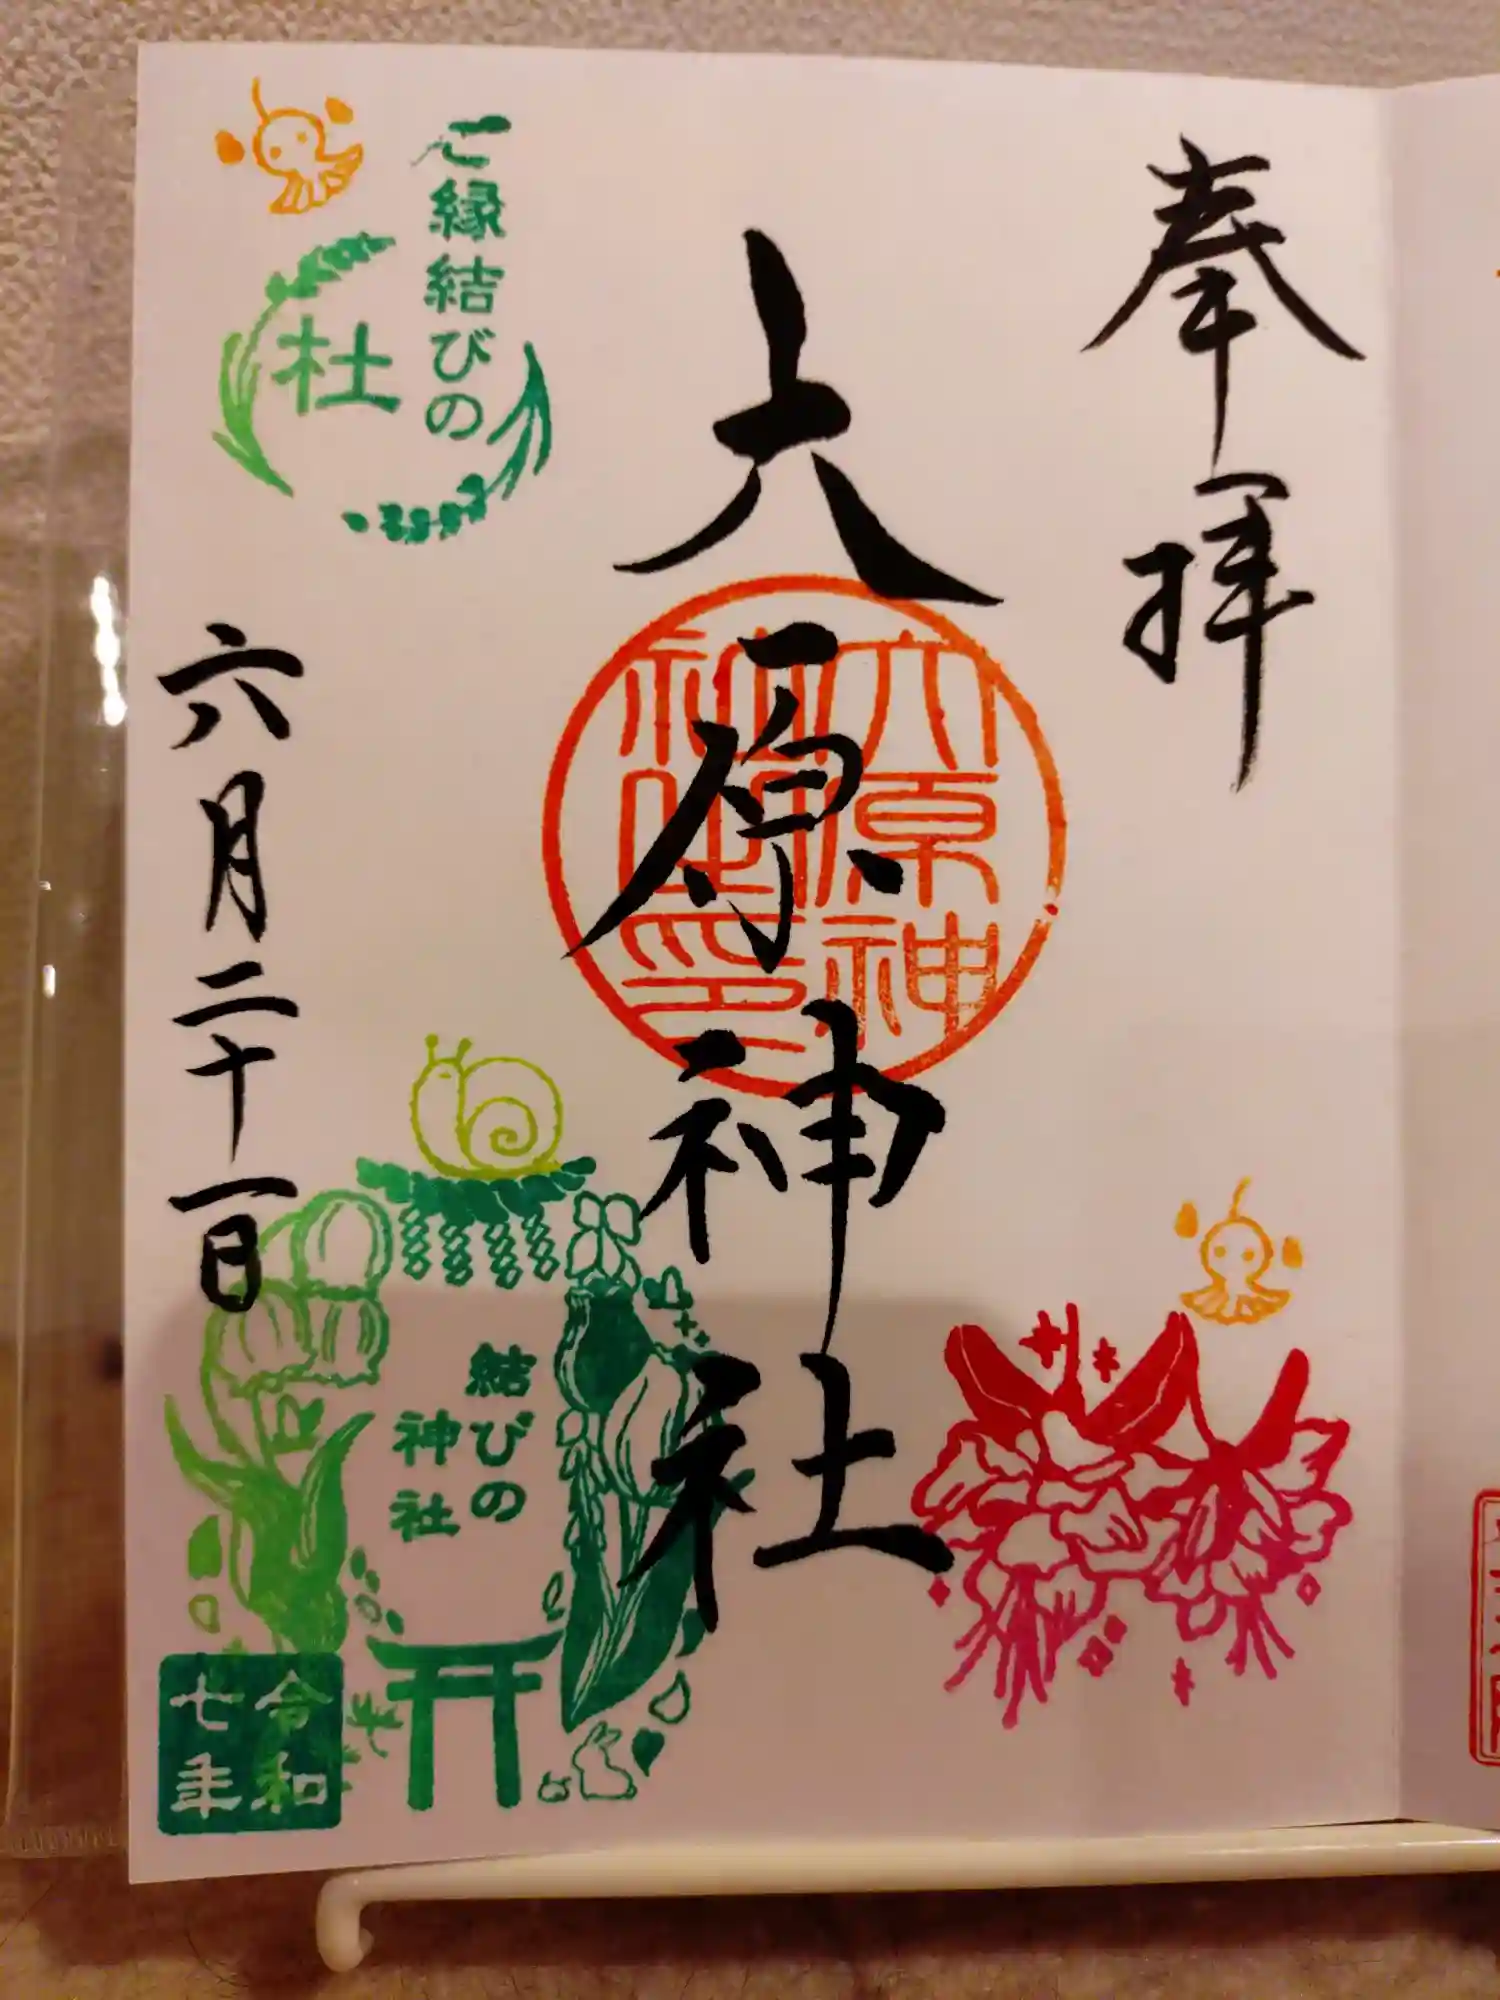 奉拝
大原神社
大原神
社印
ご縁結びの
杜
六月二十一日
結びの
神社
令和
七年